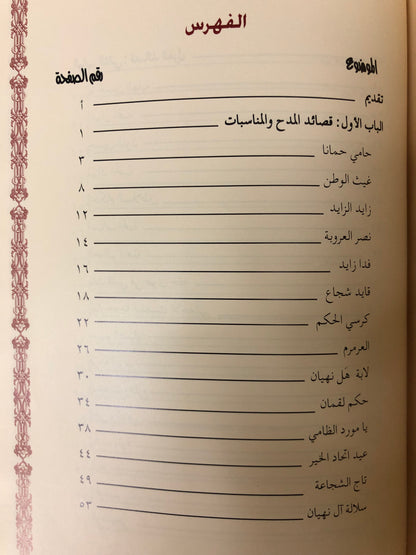 الفهرس
الموضوع رقم الصفحة
تقديم أ
الباب الأول: قصائد المدح والمناسبات ١
حامي حمانا ٣
غيث الوطن ٨
زايد الزايد ١٢
نصر العروبة ١٤
فدا زايد ١٦
قايد شجاع ١٨
كرسي الحكم ٢٢
العرمرم ٢٦
لابة هَل نهيان ٣٠
حكم لقمان ٣٤
يا مورد الظامي ٣٨
عيد اتّحاد الخير ٤٤
تاج الشجاعة ٤٩
سلالة آل نهيان ٥٣